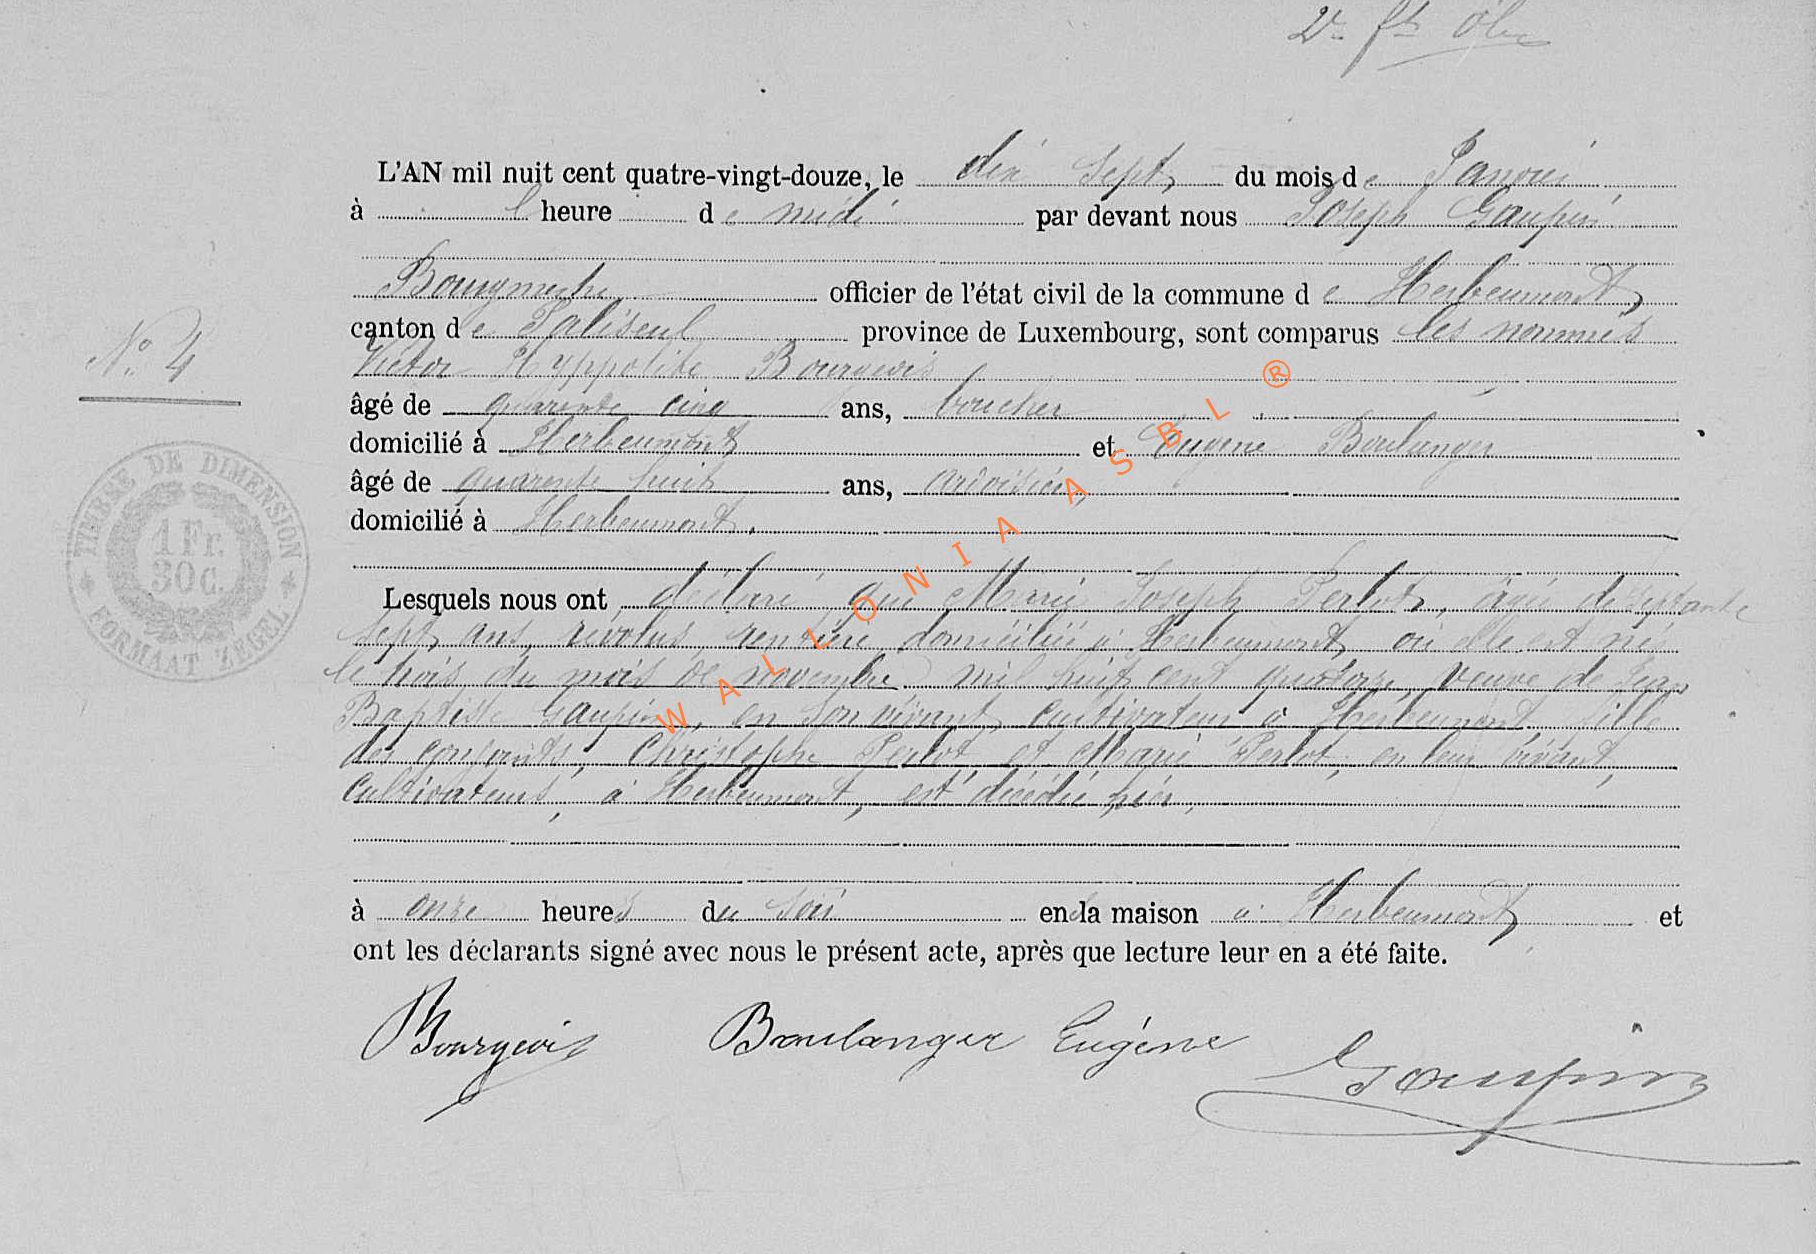 L'AN mil huit cent quatre-vingt-douze, le dix sept du mois de Janvier
à l heure de midi par devant nous Joseph Gaupin
Bourgmestre officier de l'état civil de la commune de Herbeumont,
canton de Paliseul province de Luxembourg, sont comparus les nommés
Victor Hyppolite Bourgeois
âgé de quarante cinq ans, boucher
domicilié à Herbeumont et Eugène Boulanger
âgé de quarante huit ans, ardoisier,
domicilié à Herbeumont.
N° 4
TIMBRE DE DIMENSION
1 Fr.
30 C.
FORMAAT ZEGEL
Lesquels nous ont déclaré que Marie Joseph Perlot, âgée de septante
sept ans révolus, rentière, domiciliée à Herbeumont, où elle est née
le trois du mois de novembre mil huit cent quatorze, veuve de Jean
Baptiste Gaupin, en son vivant, cultivateur à Herbeumont fille
des conjoints, Christophe Perlot et Marie Perlot, en leur vivant,
cultivateurs, à Herbeumont, est décédée hier,
à onze heures du soir en la maison à Herbeumont, et
ont les déclarants signé avec nous le présent acte, après que lecture leur en a été faite.
Bourgeois Boulanger Eugène Gaupin
WALLONIA ASBL ®